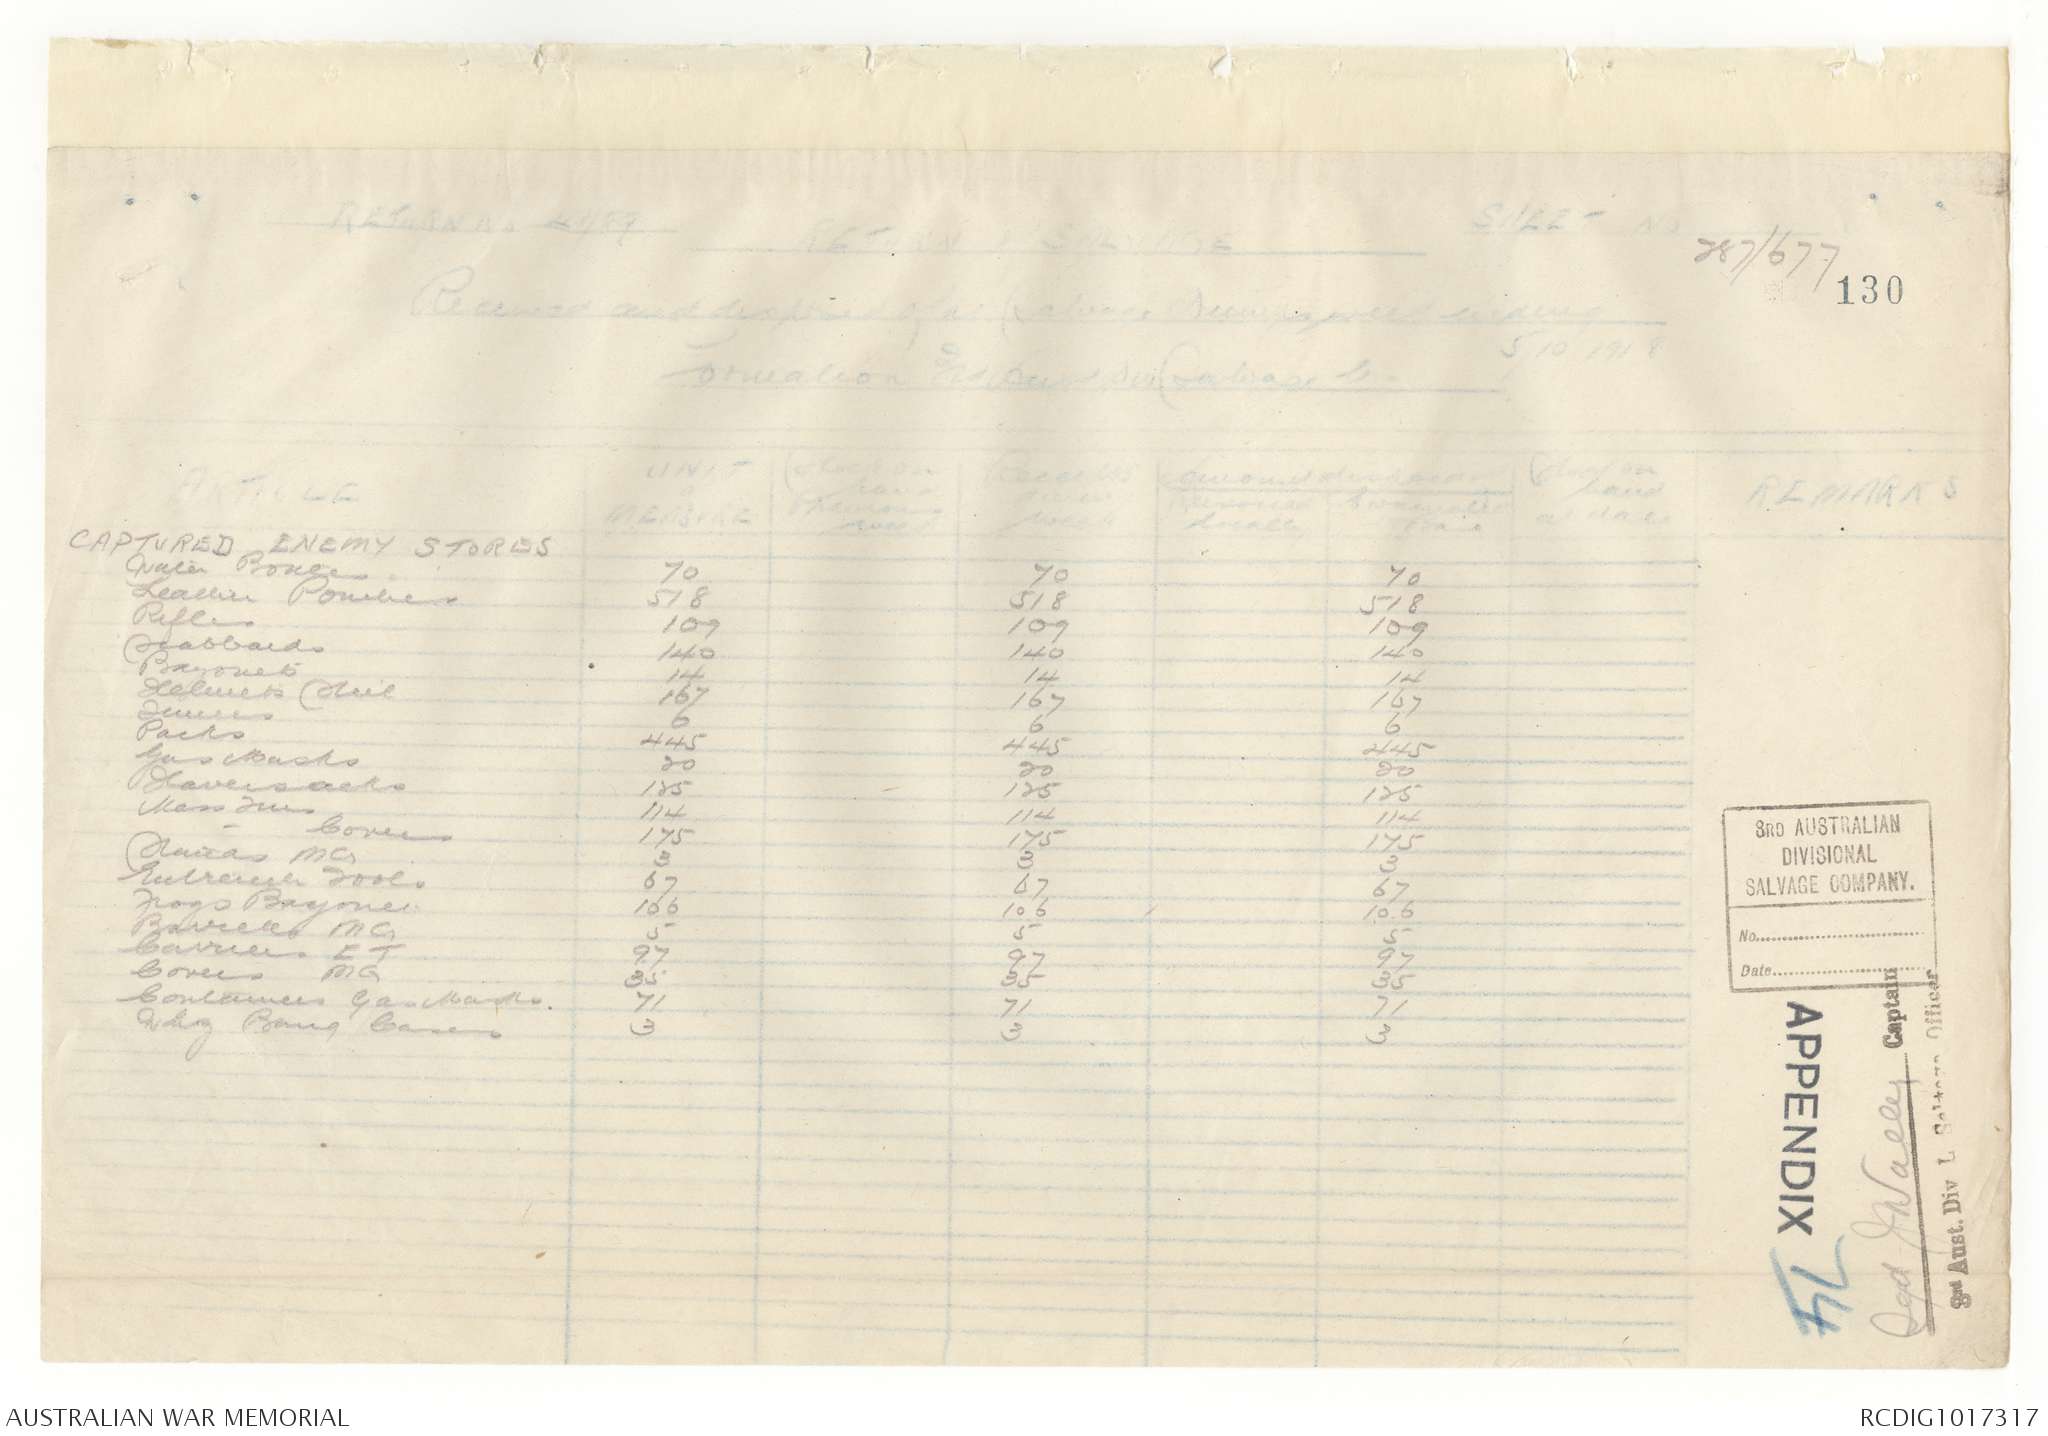 RETURN No
RETURN SALVAGE
SHEET No
287/677
130
Received and disposed of week ending
5/10/1918
Formation 3rd Aust Div Salvage Co.
ARTICLE UNIT of MEASURE Stock on hand Previous week Received during week Amount Returned locally Evacuated Base Stock on hand at date REMARKS
CAPTURED ENEMY STORES
Water Bottles 70 70 70
Leather Pouches 518 518 518
Rifles 109 109 109
Scabbards 140 140 140
Bayonets 14 14 14
Helmets Steel 167 167 167
6 6 6
Packs 445 445 445
Gas Masks 20 20 20
Haversacks 125 125 125
Mess Tins 114 114 114
" Covers 175 175 175
MG 3 3 3
Entrench Tools 67 67 67
Frogs Bayonet 106 106 106
Barrells MG 5 5 5
Carriers E T 97 97 97
Covers MG 35 35 35
Containers Gas Masks. 71 71 71
Whiz Bang Cases 3 3 3
3RD AUSTRALIAN
DIVISIONAL
SALVAGE COMPANY.
No.
Date
APPENDIX 54
Captain
3rd Aust. Div L Salvage Officer
AUSTRALIAN WAR MEMORIAL
RCDIG1017317